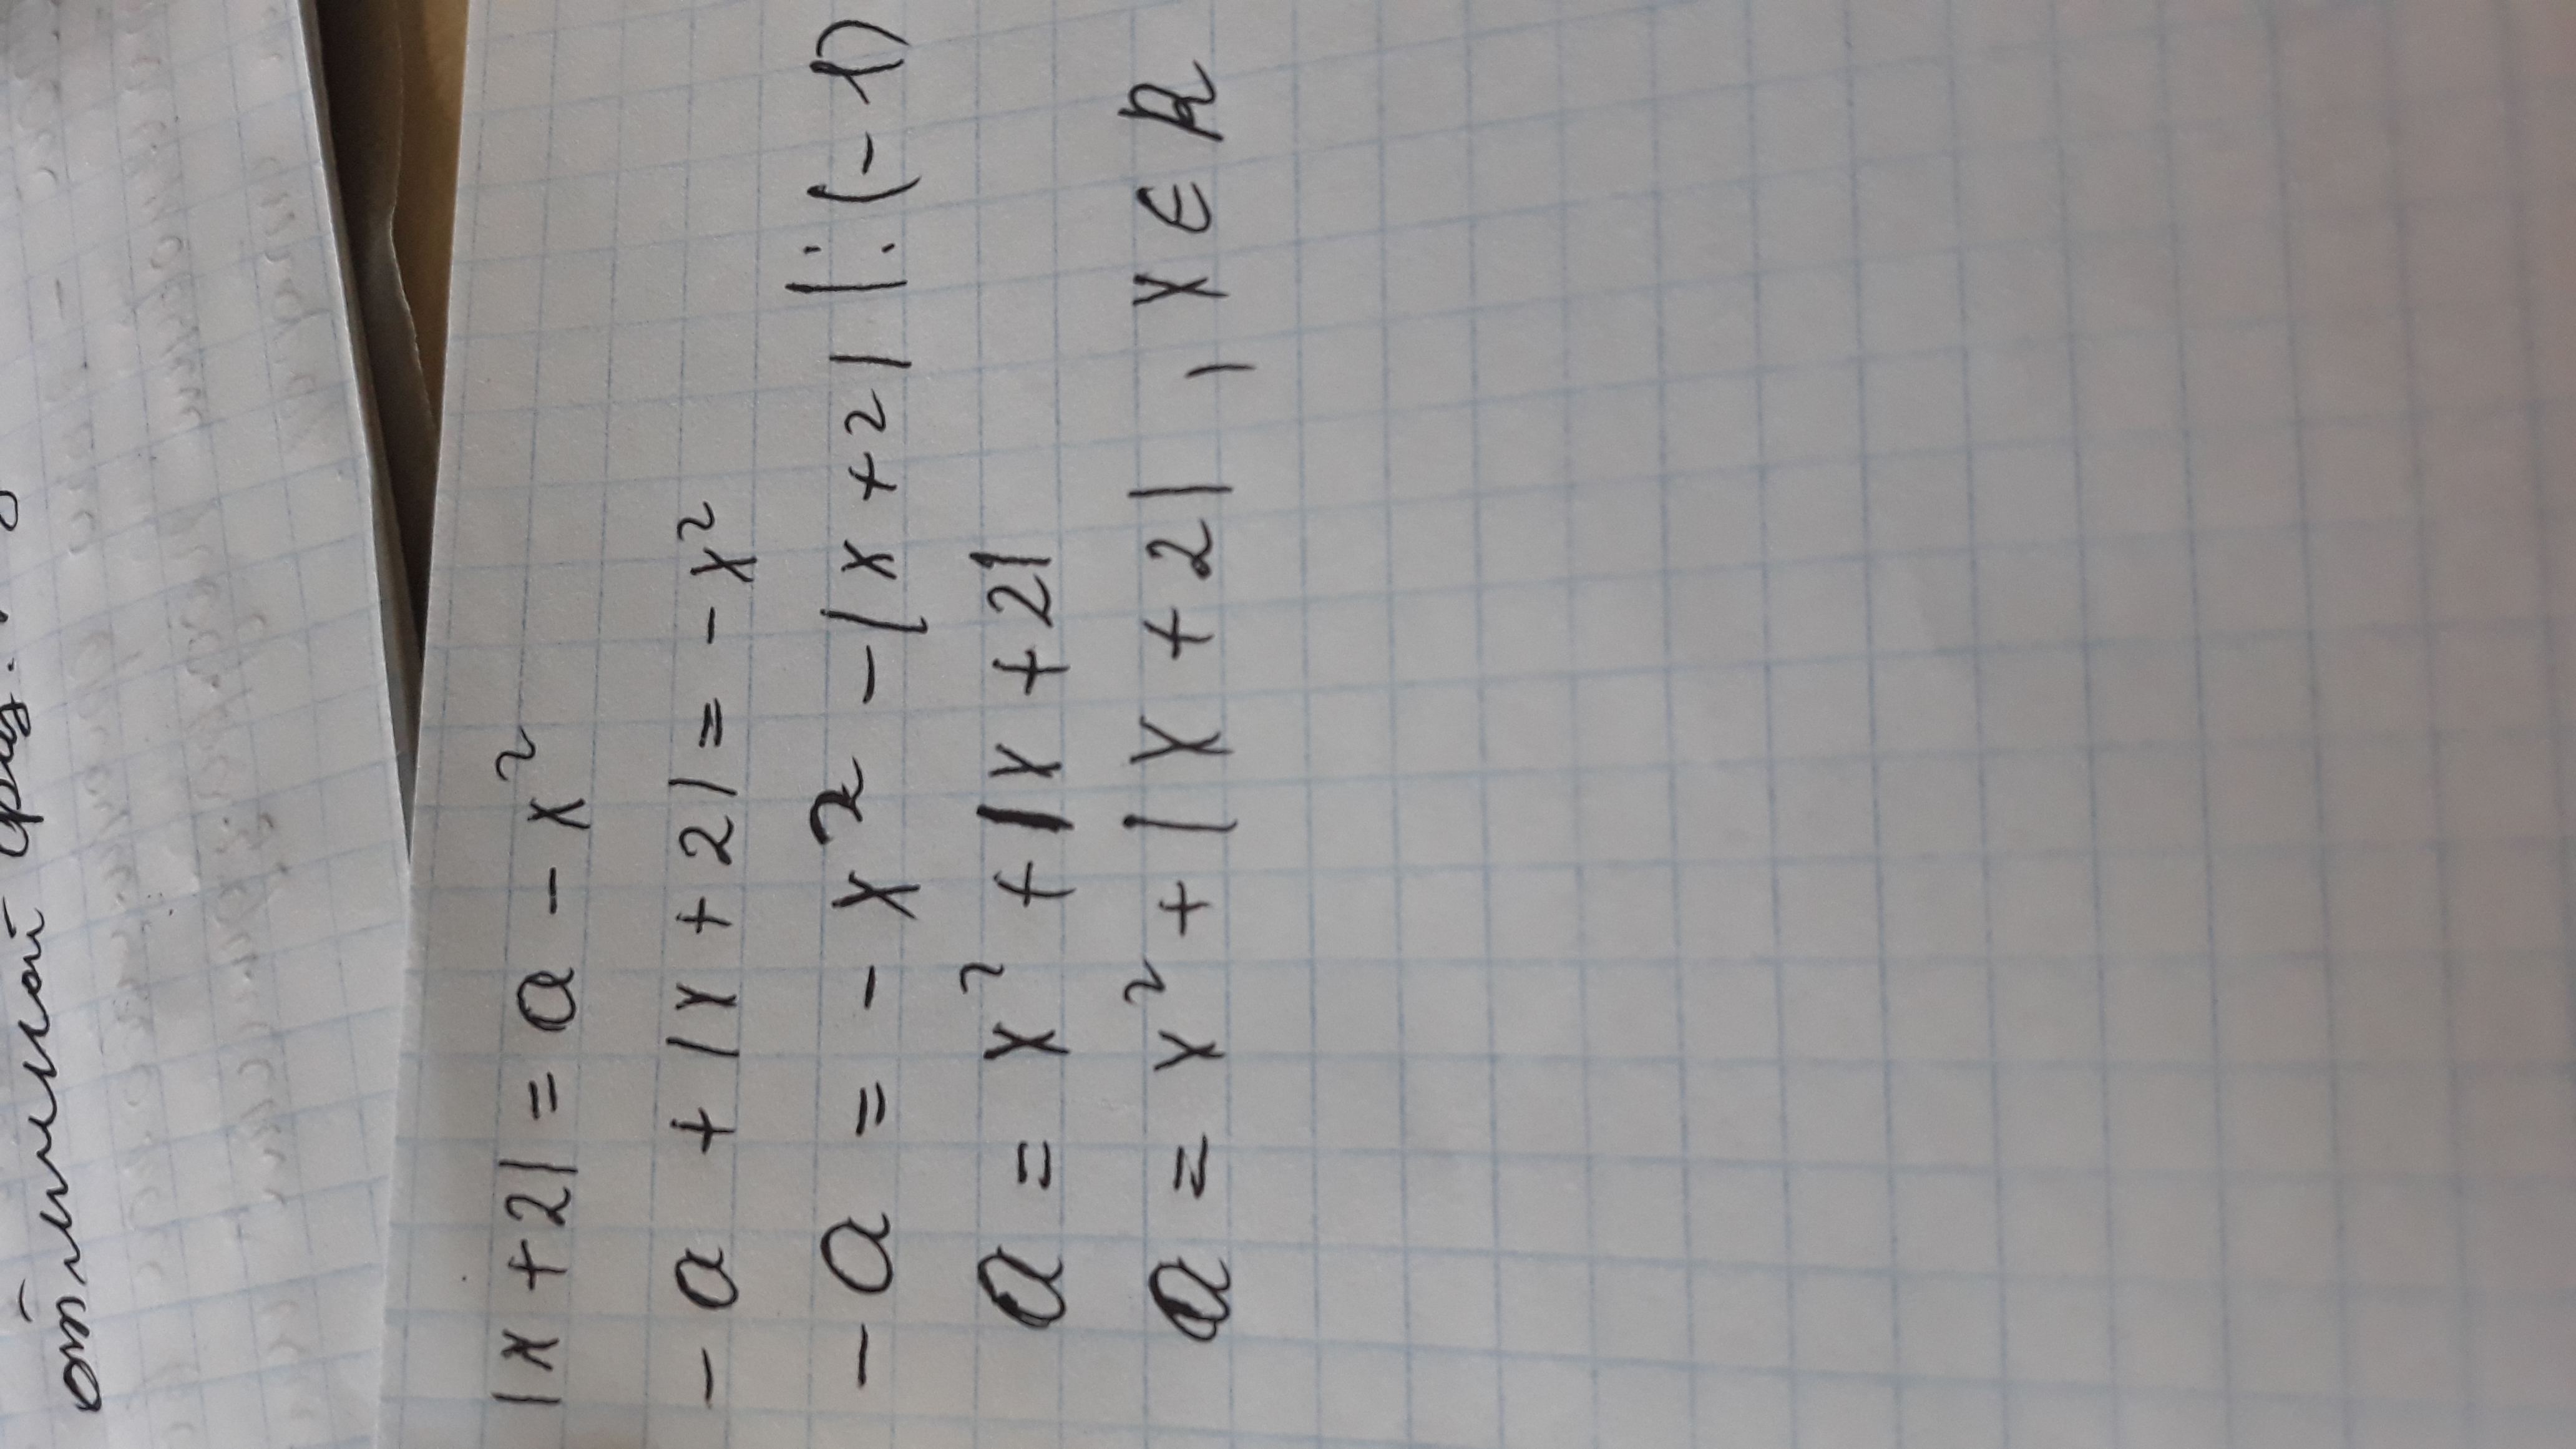 отличной
|x + 2| = a - x²
- a + |x + 2| = - x²
- a = - x² - |x + 2| |:(-1)
a = x² + |x + 2|
a = x² + |x + 2| , x ∈ R